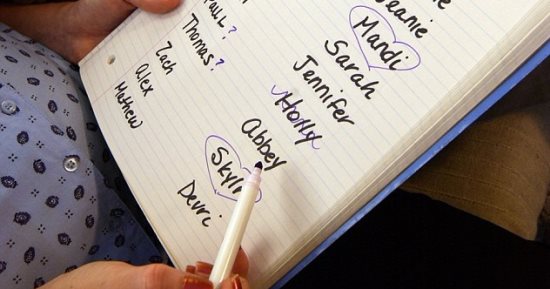 Paul?
Thomas?
Zach
Alex
Mathew
Jeanie
Mandi
Sarah
Jennifer
Holly
Abbey
Devri